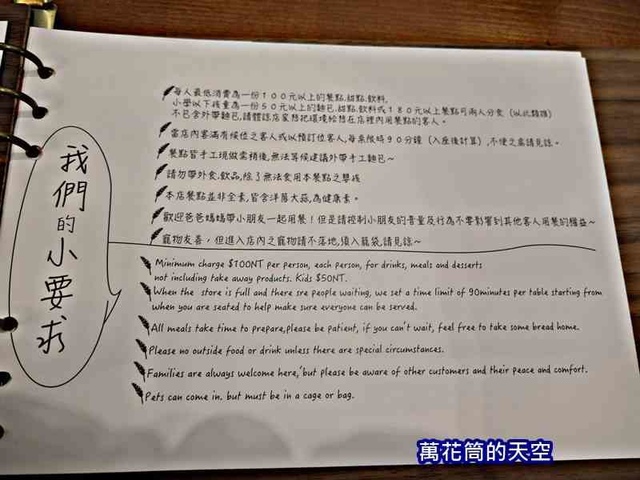 我們的小要求
每人最低消費為一份100元以上的餐點.甜點.飲料.
小學以下孩童為一份50元以上的麵包.甜點.飲料或180元以上餐點可兩人分食 (以此類推)
不包含外帶麵包,請體諒店家想把環境給想在店裡內用餐點的客人。
當店內客滿有候位之客人或以預訂位客人,每桌限時90分鐘 (入座後計算) ,不便之處請見諒。
餐點皆手工現做需稍後,無法等候建議外帶手工麵包~
請勿帶外食.飲品,除了無法食用本餐點之嬰孩
本店餐點並非全素,皆含洋蔥大蒜,為健康素。
歡迎爸爸媽媽帶小朋友一起用餐!但是請控制小朋友的音量及行為不要影響到其他客人用餐的權益~
寵物友善,但進入店內之寵物請不落地,須入籠袋,請見諒~
Minimum charge $100NT per person, each person, for drinks, meals and desserts
not including take away products. Kids $50NT.
When the store is full and there sre people waiting, we set a time limit of 90minutes per table starting from
when you are seated to help make sure everyone can be served.
All meals take time to prepare,please be patient, if you can't wait, feel free to take some bread home.
Please no outside food or drink unless there are special circumstances.
Families are always welcome here, but please be aware of other customers and their peace and comfort.
Pets can come in. but must be in a cage or bag.
萬花筒的天空